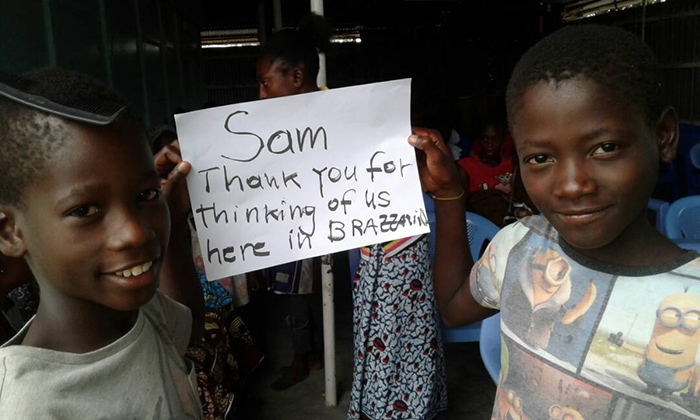 Sam
Thank you for
thinking of us
here in BRAZZAVIN